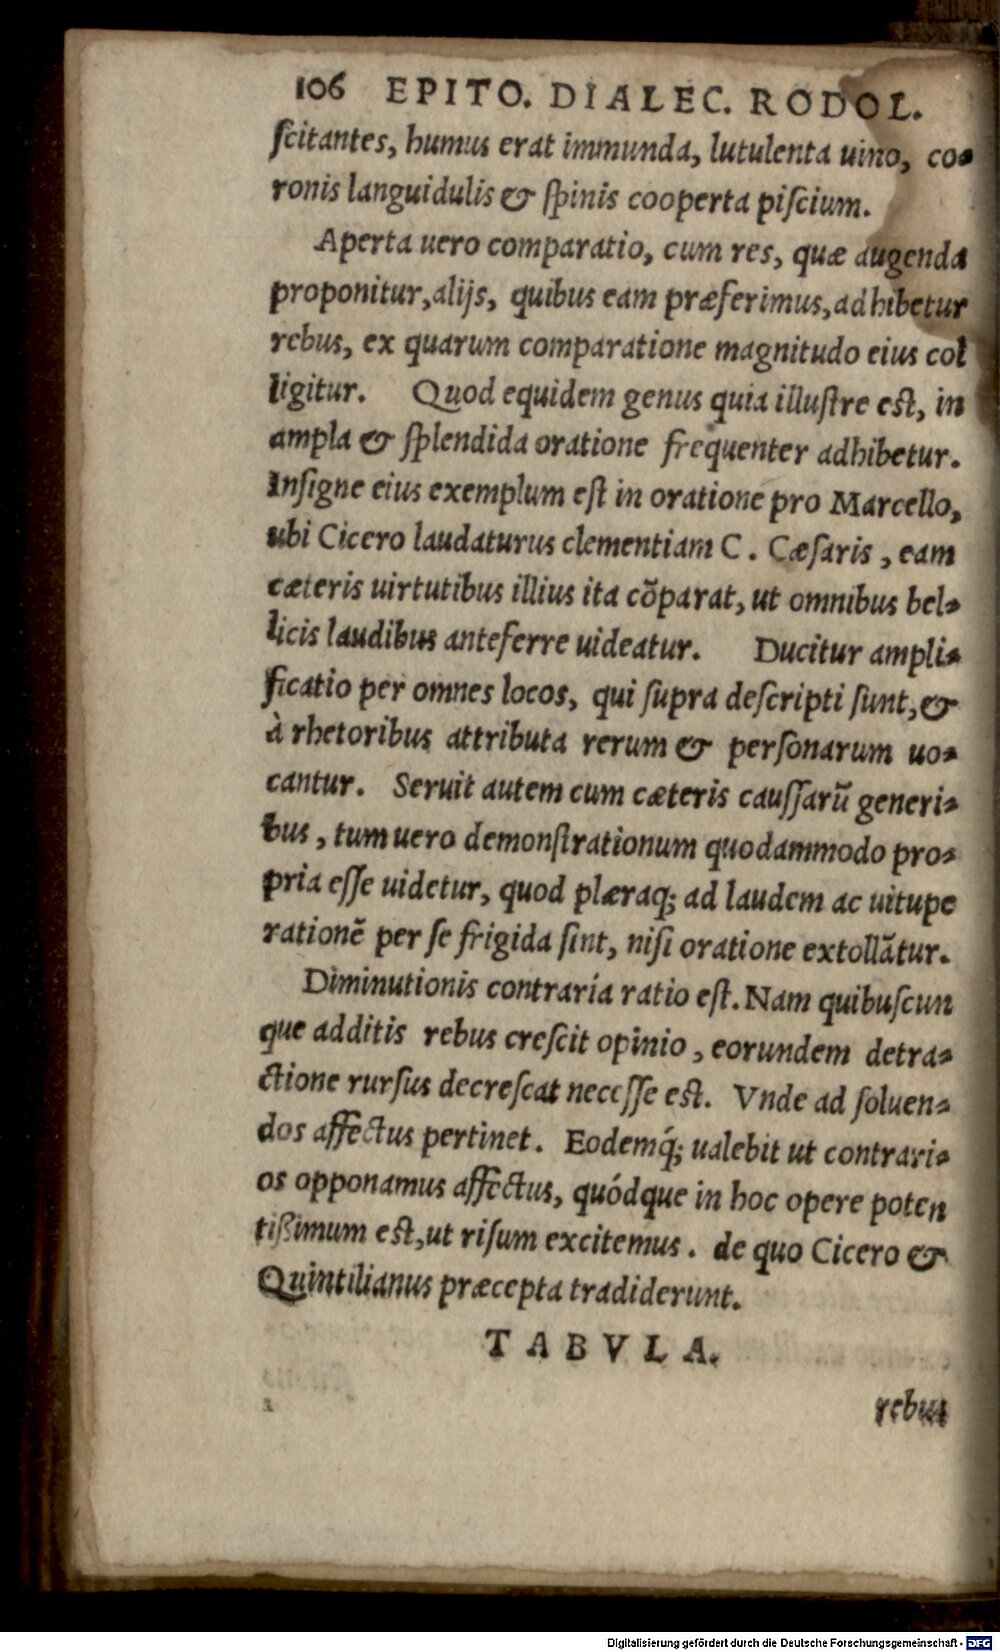 106 EPITO. DIALEC. RODOL.
scitantes, humus erat immunda, lutulenta uino, co-
ronis languidulis & spinis cooperta piscium.
Aperta uero comparatio, cum res, quæ augenda
proponitur, alijs, quibus eam præferimus, adhibetur
rebus, ex quarum comparatione magnitudo eius col
ligitur. Quod equidem genus quia illustre est, in
ampla & splendida oratione frequenter adhibetur.
Insigne eius exemplum est in oratione pro Marcello,
ubi Cicero laudaturus clementiam C. Cæsaris, eam
cæteris uirtutibus illius ita cõparat, ut omnibus bel-
licis laudibus anteferre uideatur. Ducitur ampli-
ficatio per omnes locos, qui supra descripti sunt, &
à rhetoribus attributa rerum & personarum uo-
cantur. Seruit autem cum cæteris caussarũ generi-
bus, tum uero demonstrationum quodammodo pro-
pria esse uidetur, quod plæraq; ad laudem ac uitupe
rationẽ per se frigida sint, nisi oratione extollãtur.
Diminutionis contraria ratio est. Nam quibuscun
que additis rebus crescit opinio, eorundem detra-
ctione rursus decrescat necesse est. Vnde ad soluen-
dos affectus pertinet. Eodemq́; ualebit ut contrari-
os opponamus affectus, quódque in hoc opere poten
tißimum est, ut risum excitemus. de quo Cicero &
Quintilianus præcepta tradiderunt.
TABVLA.
rebus
Digitalisierung gefördert durch die Deutsche Forschungsgemeinschaft - DFG